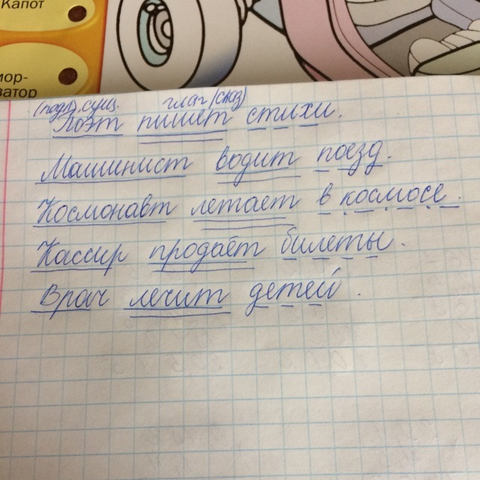 Капот
мор-
затор
(подл), сущ. глаг (сказ)
Поэт пишет стихи.
Машинист водит поезд.
Космонавт летает в космосе.
Кассир продаёт билеты.
Врач лечит детей.